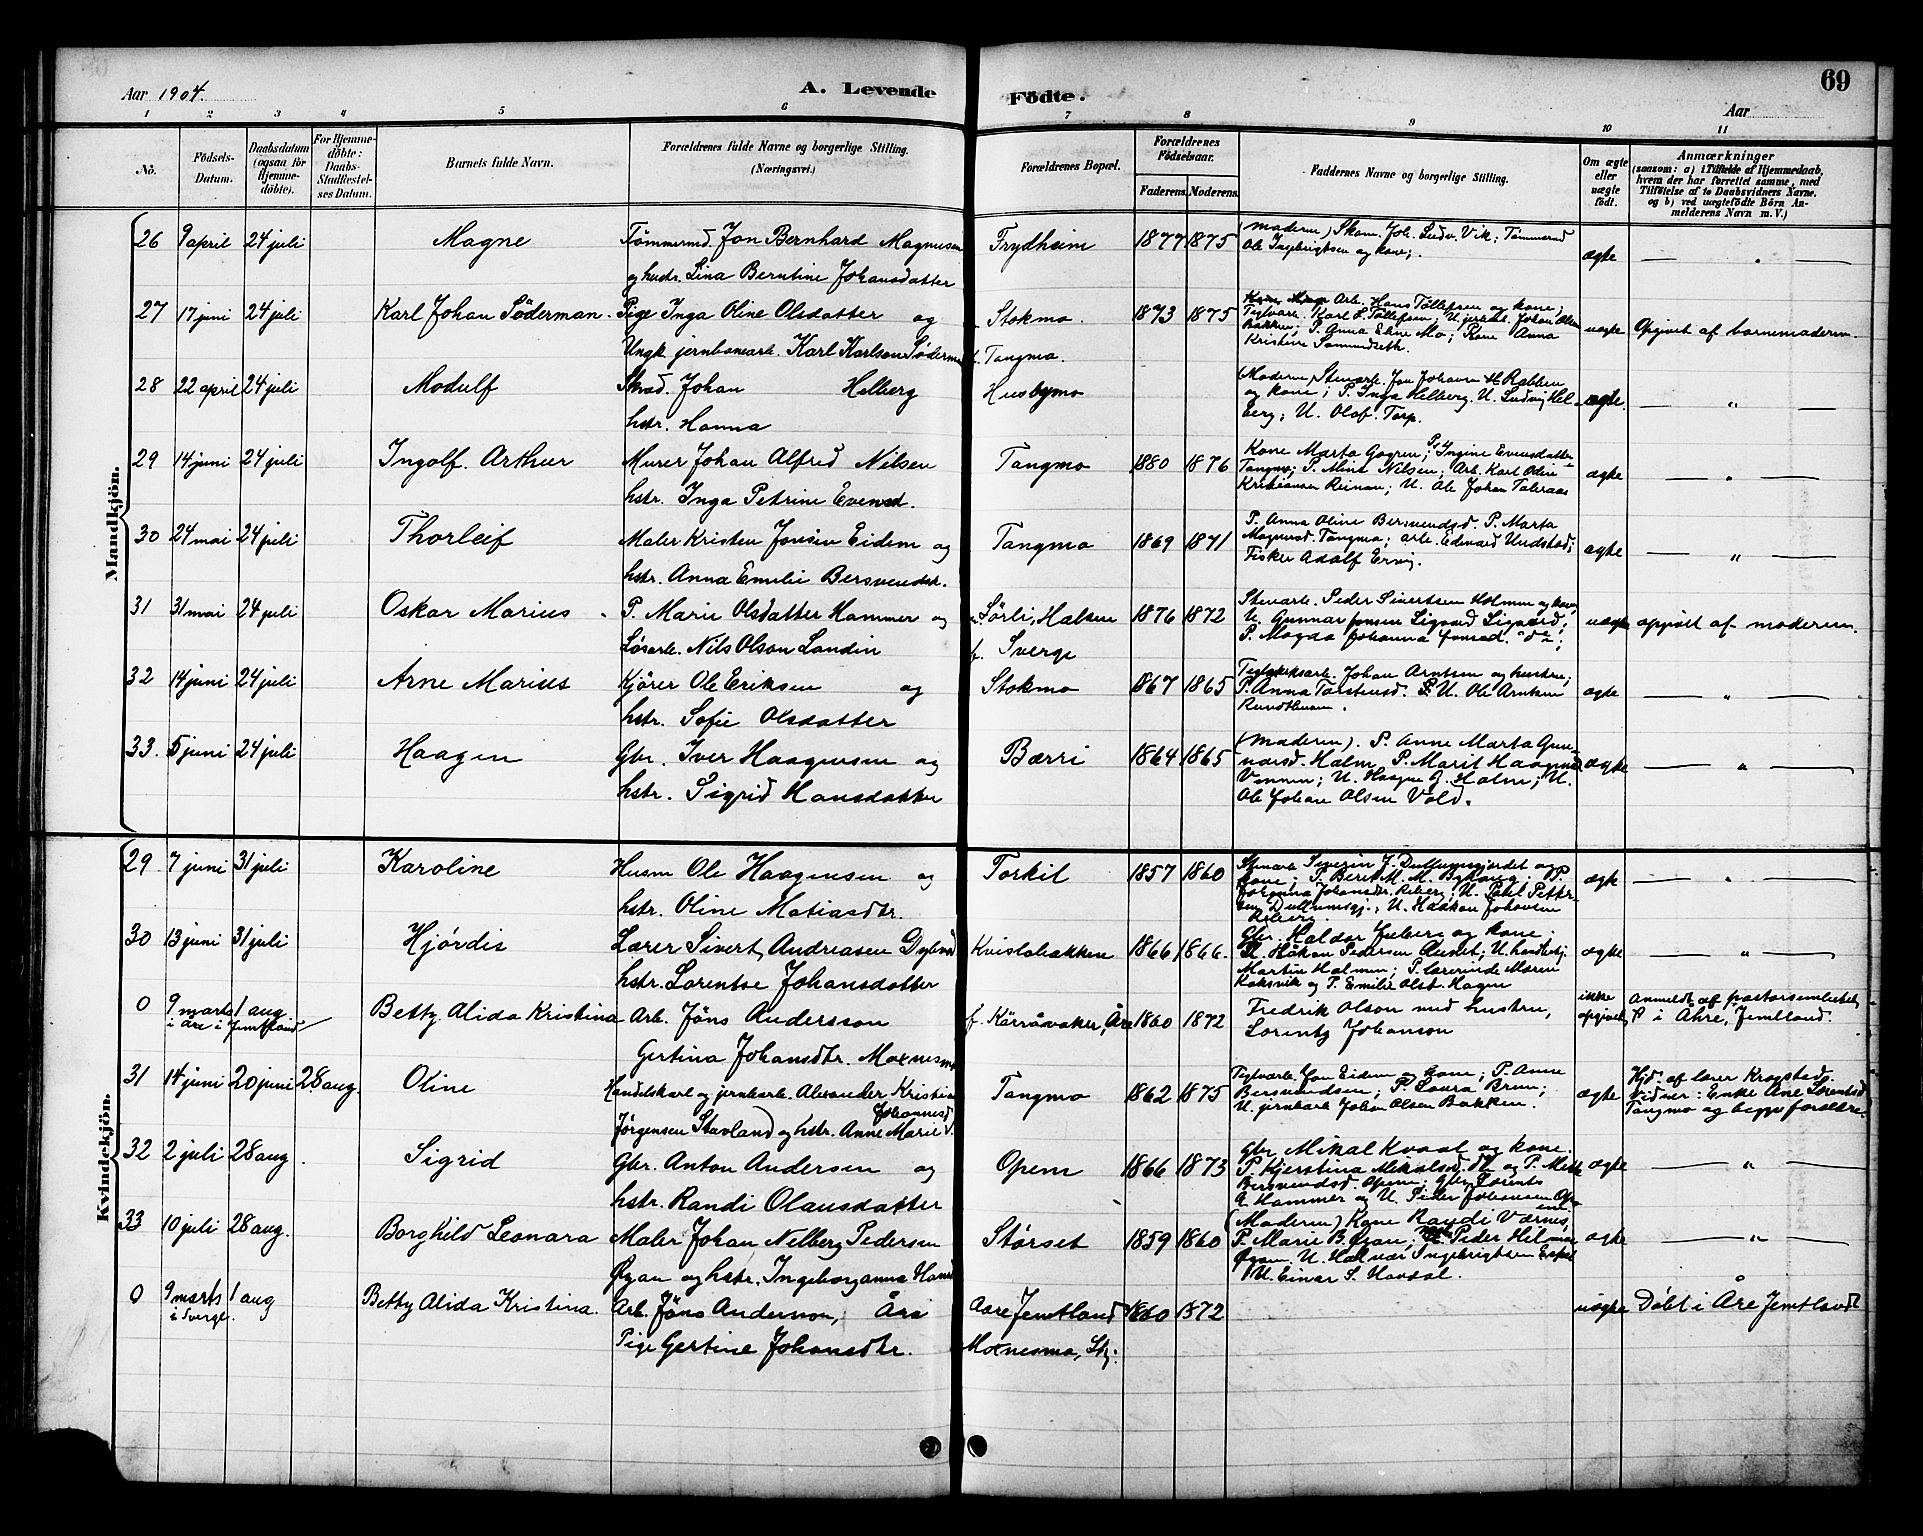 69
Aar 1904. A. Levende Födte. Aar
1 2 3 4 5 6 7 8 9 10 11
No. Födsels-Datum. Daabsdatum (ogsaa for Hjemmedöbte). For Hjemmedöbte: Daabs-Stadfestelses Datum. Barnets fulde Navn. Forældrenes fulde Navne og borgerlige Stilling. (Næringsvei.) Forældrenes Bopæl. Forældrenes Födselsaar. Faderens. Moderens. Faddernes Navne og borgerlige Stilling. Om ægte eller uægte födt. Anmærkninger (saasom: a) i Tilfælde af Hjemmedaab, hvem der har forrettet samme, med Tilföielse af to Daabsvidners Navne, og b) ved uægtefödte Börn Anmelderens Navn m. V.)
Mandkjön.
26 9 april 24 juli Magne Tømmermd. Jon Bernhard Magnusen Frydheim 1877 1875 (Moderen) Skom. Joh. Ludv. Vik; Tömmermd ægte — " —
og hustr. Lina Berntine Johansdatter Ole Ingebrigtsen og kone;
27 17 juni 24 juli Karl Johan Söderman. Pige Inga Oline Olsdatter og Stokmo. 1873 1875 Arb. Hans Tollefsen og kone; uægte Opgivet af barnemoderen.
Ungk. jernbanearb. Karl Karlsen Söderman f. Tangmo. Teglværk. Karl L. Tollefsen; U. jernb. Johan Olsen Bakken; P. Anna Eline Mo; Kone Anna Kristine
28 22 april 24 juli Modulf Skræd. Johan Helberg Husbymo (Moderen) Stenarb. Jon Johansen H. Rabben ægte. — " —
hstr. Hanna og kone; P. Inga Helberg. U. Ludvig Helberg; U. Olof Torp.
29 14 juni 24 juli Ingolf Arthur Murer Johan Alfred Nilsen Tangmo 1880 1876 Kone Marta P. Ingine Evensdatter ægte — " —
hstr. Inga Petrine Evensd. Tangmo; P. Alma Nilsen; Arb. Karl Olin Kristiansen Reinan; U. Ole Johan Talsraas
30 24 mai 24 juli Thorleif Maler Kristen Jonsen Eidem og Tangmo 1869 1871 P. Anna Oline Bersvendsd. P. Marta ægte — " —
hstr. Anna Emelie Bersvendsdr. Magnusd. Tangmo; arb. Edvard Undstad; Fisker Adolf Ervig.
31 31 mai 24 juli Oskar Marius P. Marie Olsdatter Hammer og Sörli, Halsen 1876 1872 Stenarb. Peder Sivertsen Holmen og kone, uægte opgivet af moderen.
Lösarb. Nils Olson Landin f. Sverge U. Gunnar Jonsen Ligaard Ligaard; P. Magda Johanna Jonsd. do;
32 14 juni 24 juli Arne Marius Kjörer Ole Eriksen og Stokmo 1867 1865 Teglværksarb. Johan Arntsen og hustru; ægte — " —
hstr. Sofie Olsdatter P. Anna Torstensd. U. Ole Arntsen
33. 5 juni 24 juli Haagen Gbr. Iver Haagensen og Bærri 1864 1865 (Moderen). P. Anne Marta Gunnarsd. Holm P. Marit Haagensd ægte — " —
hstr. Sigrid Hansdatter U. Haagen G. Holm; U. Ole Johan Olsen Vold.
Kvindekjön.
29 7 juni 31 juli Karoline Husm Ole Haagensen og Torkil 1857 1860 Stenarb Severin J. Dullumsgjerdet og ægte — " —
hstr. Oline Matiasdtr. kone; P. Berit M. M. Byhaug; P. Johanna Johansdtr. Reberg; U. Petter Dullumsgj.; U. Haakon Johansen Reberg.
30 13 juni 31 juli Hjördis Lærer Sivert Andreasen Kvislabakken 1866 1866. Gbr. Haldor Julberg og kone; ægte — " —
hstr. Lorentse Johansdatter U. Håkon Pedersen U. handelsbj. Martin Halmen; P. lærerinde Maren Koksvik og P. Emilie Olsd. Hagen
0 9 marts 1 aug. Betty Alida Kristina Arb. Jöns Andersson f. Kärråvaker, Åre 1860 1872 Fredrik Olson med hustru, ikke opgivet Anmeldt af pastorsembetet
i Åre i Jemtland Gertina Johansdtr. Moxnesmo Lorentz Johanson i Åhre, Jemtland.
31 14 juni 20 juni 28 aug. Oline Handelskarl og jernbarb. Alexander Kristian Tangmo 1862 1875 Teglværk. Jon Eidem og kone; P. Anne ægte Hjd. af lærer Kragstad,
Jörgensen Stavland og hstr. Anne Marie Johannesd. Bersvendsen; P. Laura Brun; U. jernbarb Johan Olsen Bakken. Vidner: Enke Ane Lorentsd Tangmo og begge forældre.
32 2 juli 28 aug. Sigrid Gbr. Anton Andersen og Opem 1866 1873 Gbr. Mikal Kvaal og kone. ægte — " —
hstr. Randi Olausdatter P. Kjerstina Mikalsd. do og P. Mette Bersvendsd. Opem; Gbr. Lorents A. Hammer og U. Peder Johansen Opem
33 10 juli 28 aug. Borghild Leonara Maler Johan Nelberg Pedersen Størset 1859 1860 (Moderen) Kone Randi Værnes, ægte — " —
Øgan og hstr. Ingeborganna Hansd P. Marie B. Øgan; Peder Hilmar Øgan. U. Halvar Ingebrigtsen U. Einar S. Havdal.
0 9 marts 1 aug Betty Alida Kristina. Arb. Jöns Anderson, Åre Aare Jemtland 1860 1872 uægte Döbt i Åre Jemtland
i Sverge. Pige Gertine Johansdtr. Moxnesmo, Stj.